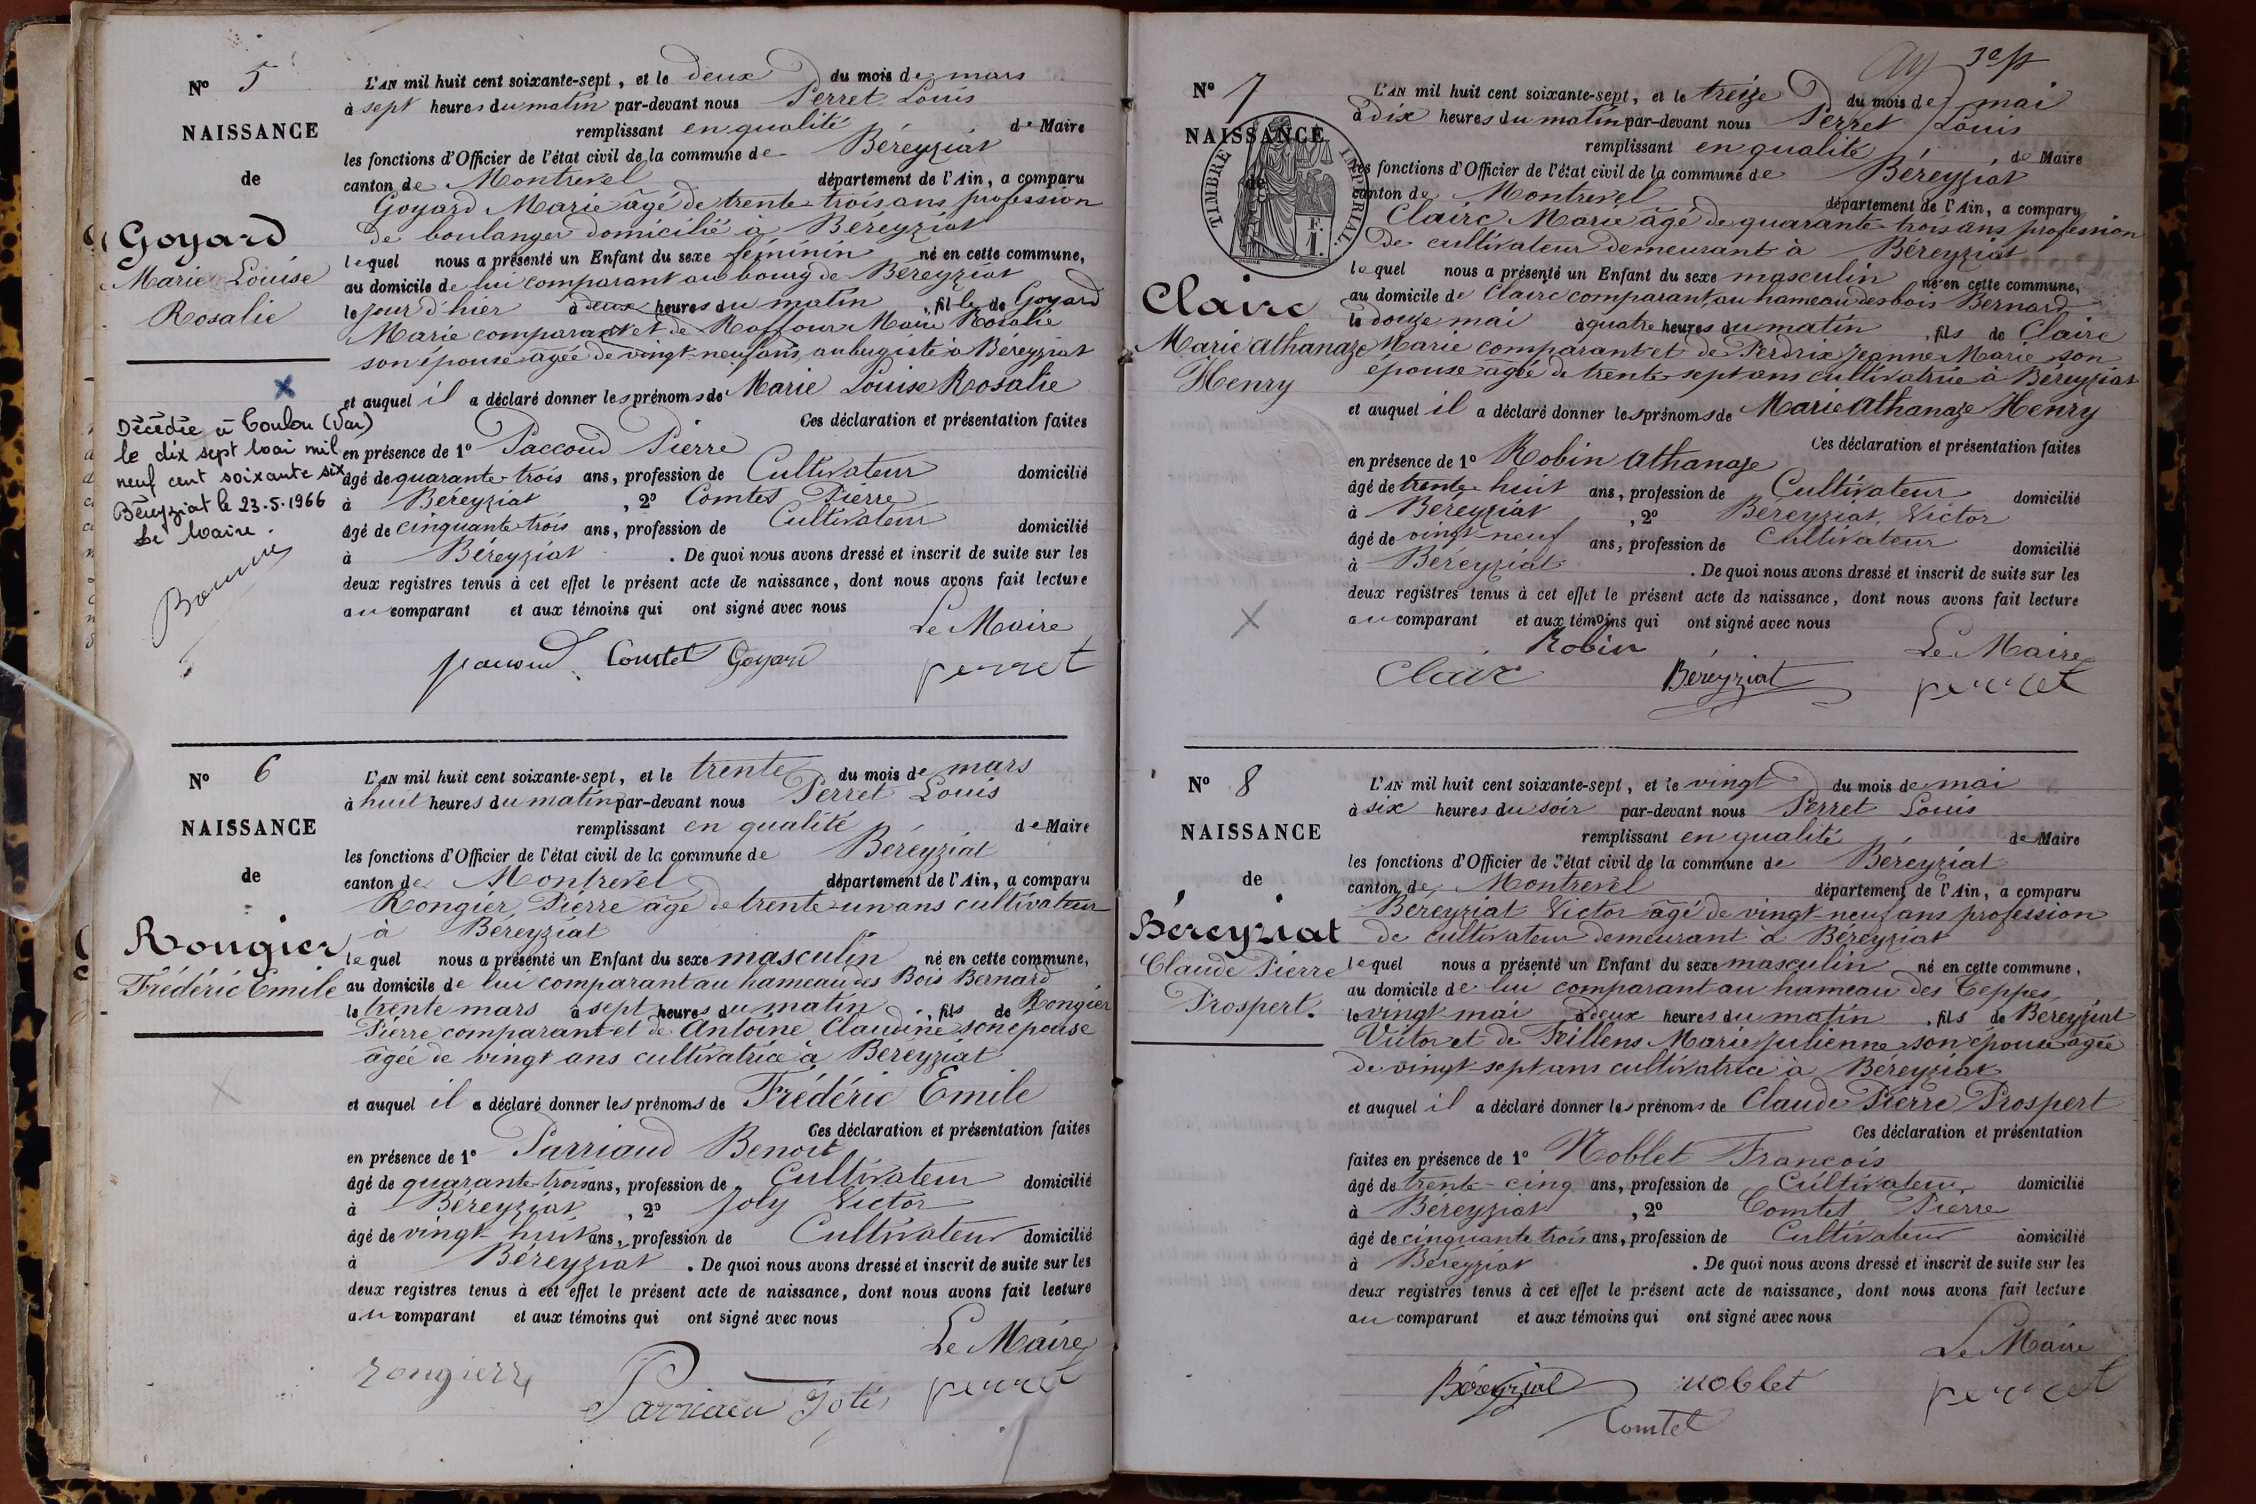 N° 5
NAISSANCE
de
Goyard
Marie Louise
Rosalie
Décédée à Toulon (Var)
le dix sept mai mil
neuf cent soixante six
Béreyziat le 23.5.1966
Le Maire.
L'AN mil huit cent soixante-sept, et le deux du mois de mars
à sept heures du matin par-devant nous Perret Louis
remplissant en qualité de Maire
les fonctions d'Officier de l'état civil de la commune de Béreyziat
canton de Montrevel département de l'Ain, a comparu
Goyard Marie âgé de trente-trois ans profession
de boulanger domicilié à Béreyziat
lequel nous a présenté un Enfant du sexe féminin né en cette commune,
au domicile de lui comparant au bourg de Béreyziat
le jour d'hier à deux heures du matin, fille de Goyard
Marie comparant et de Marie Rosalie
son épouse âgée de vingt-neuf ans, aubergiste à Béreyziat
et auquel il a déclaré donner les prénoms de Marie Louise Rosalie
Ces déclaration et présentation faites
en présence de 1° Paccoud Pierre
âgé de quarante-trois ans, profession de Cultivateur domicilié
à Béreyziat, 2° Comtet Pierre
âgé de cinquante-trois ans, profession de Cultivateur domicilié
à Béreyziat. De quoi nous avons dressé et inscrit de suite sur les
deux registres tenus à cet effet le présent acte de naissance, dont nous avons fait lecture
au comparant et aux témoins qui ont signé avec nous
Le Maire
paccoud Comtet Goyard perret
N° 6
NAISSANCE
de
Rongier
Frédéric Emile
L'AN mil huit cent soixante-sept, et le trente du mois de mars
à huit heures du matin par-devant nous Perret Louis
remplissant en qualité de Maire
les fonctions d'Officier de l'état civil de la commune de Béreyziat
canton de Montrevel département de l'Ain, a comparu
Rongier Pierre âgé de trente-un ans cultivateur
à Béreyziat
lequel nous a présenté un Enfant du sexe masculin né en cette commune,
au domicile de lui comparant au hameau des Bois Bernard
le trente mars à sept heures du matin, fils de Rongier
Pierre comparant et de Antoine Claudine son épouse
âgée de vingt ans cultivatrice à Béreyziat
et auquel il a déclaré donner les prénoms de Frédéric Emile
Ces déclaration et présentation faites
en présence de 1° Parriaud Benoit
âgé de quarante-trois ans, profession de Cultivateur domicilié
à Béreyziat, 2° Joly Victor
âgé de vingt-huit ans, profession de Cultivateur domicilié
à Béreyziat. De quoi nous avons dressé et inscrit de suite sur les
deux registres tenus à cet effet le présent acte de naissance, dont nous avons fait lecture
au comparant et aux témoins qui ont signé avec nous
Le Maire
perret
N° 7
NAISSANCE
de
TIMBRE IMPERIAL.
Claire
Marie Athanaze
Henry
L'AN mil huit cent soixante-sept, et le treize du mois de mai
à dix heures du matin par-devant nous Perret Louis
remplissant en qualité de Maire
les fonctions d'Officier de l'état civil de la commune de Béreyziat
canton de Montrevel département de l'Ain, a comparu
Claire Marie âgé de quarante-trois ans profession
de cultivateur demeurant à Béreyziat
lequel nous a présenté un Enfant du sexe masculin né en cette commune,
au domicile de Claire comparant au hameau des bois Bernard
le douze mai à quatre heures du matin, fils de Claire
Marie comparant et de Perdrix Jeanne Marie son
épouse âgée de trente-sept ans cultivatrice à Béreyziat
et auquel il a déclaré donner les prénoms de Marie Athanaze Henry
Ces déclaration et présentation faites
en présence de 1° Robin Athanaze
âgé de trente-huit ans, profession de Cultivateur domicilié
à Béreyziat, 2° Béreyziat Victor
âgé de vingt-neuf ans, profession de Cultivateur domicilié
à Béreyziat. De quoi nous avons dressé et inscrit de suite sur les
deux registres tenus à cet effet le présent acte de naissance, dont nous avons fait lecture
au comparant et aux témoins qui ont signé avec nous
Robin Le Maire
Claire Béreyziat perret
N° 8
NAISSANCE
de
Béreyziat
Claude Pierre
Prospert.
L'AN mil huit cent soixante-sept, et le vingt du mois de mai
à six heures du soir par-devant nous Perret Louis
remplissant en qualité de Maire
les fonctions d'Officier de l'état civil de la commune de Béreyziat
canton de Montrevel département de l'Ain, a comparu
Béreyziat Victor âgé de vingt-neuf ans profession
de cultivateur demeurant à Béreyziat
lequel nous a présenté un Enfant du sexe masculin né en cette commune,
au domicile de lui comparant au hameau des Teppes
le vingt mai à deux heures du matin, fils de Béreyziat
Victor et de Marie Julienne son épouse âgée
de vingt-sept ans cultivatrice à Béreyziat
et auquel il a déclaré donner les prénoms de Claude Pierre Prospert
Ces déclaration et présentation
faites en présence de 1° Noblet François
âgé de trente-cinq ans, profession de Cultivateur domicilié
à Béreyziat, 2° Comtet Pierre
âgé de cinquante trois ans, profession de Cultivateur domicilié
à Béreyziat. De quoi nous avons dressé et inscrit de suite sur les
deux registres tenus à cet effet le présent acte de naissance, dont nous avons fait lecture
au comparant et aux témoins qui ont signé avec nous
Le Maire
Béreyziat noblet perret
Comtet